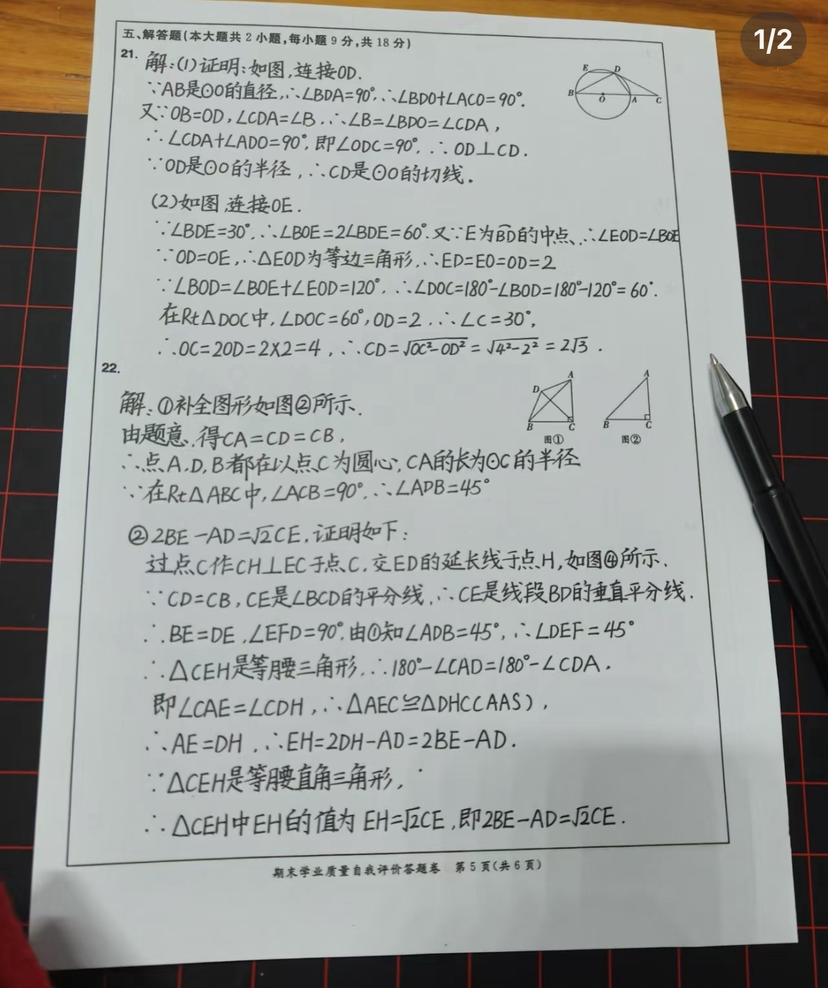 1/2
五、解答题(本大题共 2 小题,每小题 9 分,共 18 分)
21.
解:(1)证明:如图,连接OD.
∵AB是⊙O的直径,∴∠BDA=90°,∴∠BDO+∠ACO=90°.
又∵OB=OD,∠CDA=∠B,∴∠B=∠BDO=∠CDA,
∴∠CDA+∠ADO=90°,即∠ODC=90°,∴OD⊥CD.
∵OD是⊙O的半径,∴CD是⊙O的切线.
E D
B O A C
(2)如图,连接OE.
∵∠BDE=30°,∴∠BOE=2∠BDE=60°.又∵E为BD的中点,∴∠EOD=∠BOE
∵OD=OE,∴△EOD为等边三角形,∴ED=EO=OD=2
∵∠BOD=∠BOE+∠EOD=120°,∴∠DOC=180°-∠BOD=180°-120°=60°.
在Rt△DOC中,∠DOC=60°,OD=2,∴∠C=30°,
∴OC=2OD=2×2=4,∴CD=√OC²-OD²=√4²-2²=2√3.
22.
解:①补全图形如图②所示.
由题意,得CA=CD=CB,
∴点A,D,B都在以点C为圆心,CA的长为⊙C的半径
∵在Rt△ABC中,∠ACB=90°,∴∠ADB=45°
A
D
B C
图①
A
B C
图②
②2BE-AD=√2CE,证明如下:
过点C作CH⊥EC于点C,交ED的延长线于点H,如图④所示.
∵CD=CB,CE是∠BCD的平分线,∴CE是线段BD的垂直平分线.
∴BE=DE,∠EFD=90°.由①知∠ADB=45°,∴∠DEF=45°
∴△CEH是等腰三角形,∴180°-∠CAD=180°-∠CDA,
即∠CAE=∠CDH,∴△AEC≌△DHC(AAS),
∴AE=DH,∴EH=2DH-AD=2BE-AD.
∵△CEH是等腰直角三角形,
∴△CEH中EH的值为EH=√2CE,即2BE-AD=√2CE.
期末学业质量自我评价答题卷 第 5 页(共 6 页)